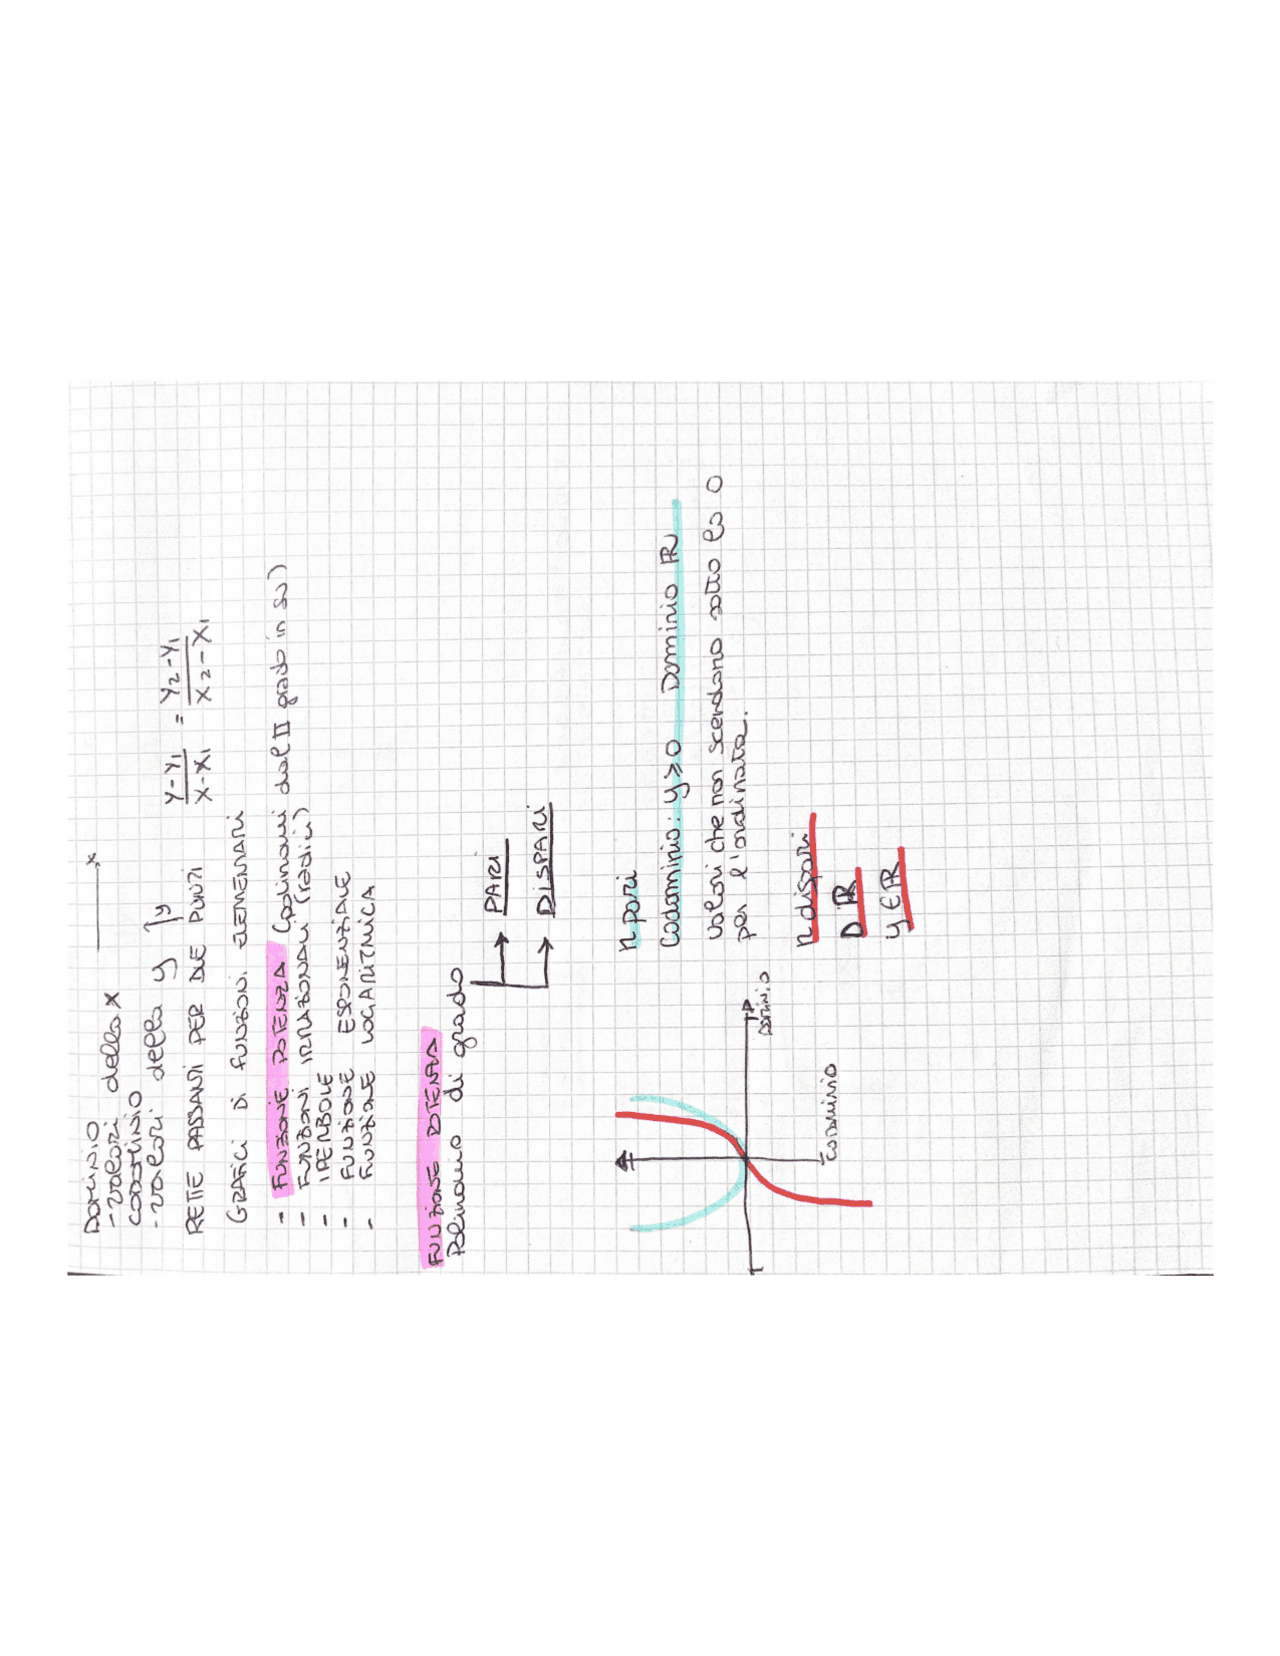 DOMINIO x
- valori della x
CODOMINIO
- valori della y y
RETTE PASSANTI PER DUE PUNTI y-y1 / x-x1 = y2-y1 / x2-x1
GRAFICI DI FUNZIONI ELEMENTARI
- FUNZIONE POTENZA (polinomi dal II grado in su)
- FUNZIONI IRRAZIONALI (radici)
- IPERBOLE
- FUNZIONE ESPONENZIALE
- FUNZIONE LOGARITMICA
FUNZIONE POTENZA
Polinomio di grado
→ PARI
→ DISPARI
n pari
Codominio: y≥0 Dominio ℝ
valori che non scendono sotto lo 0
per l'ordinata.
n dispari
D ℝ
y∈ℝ
DOMINIO
CODOMINIO